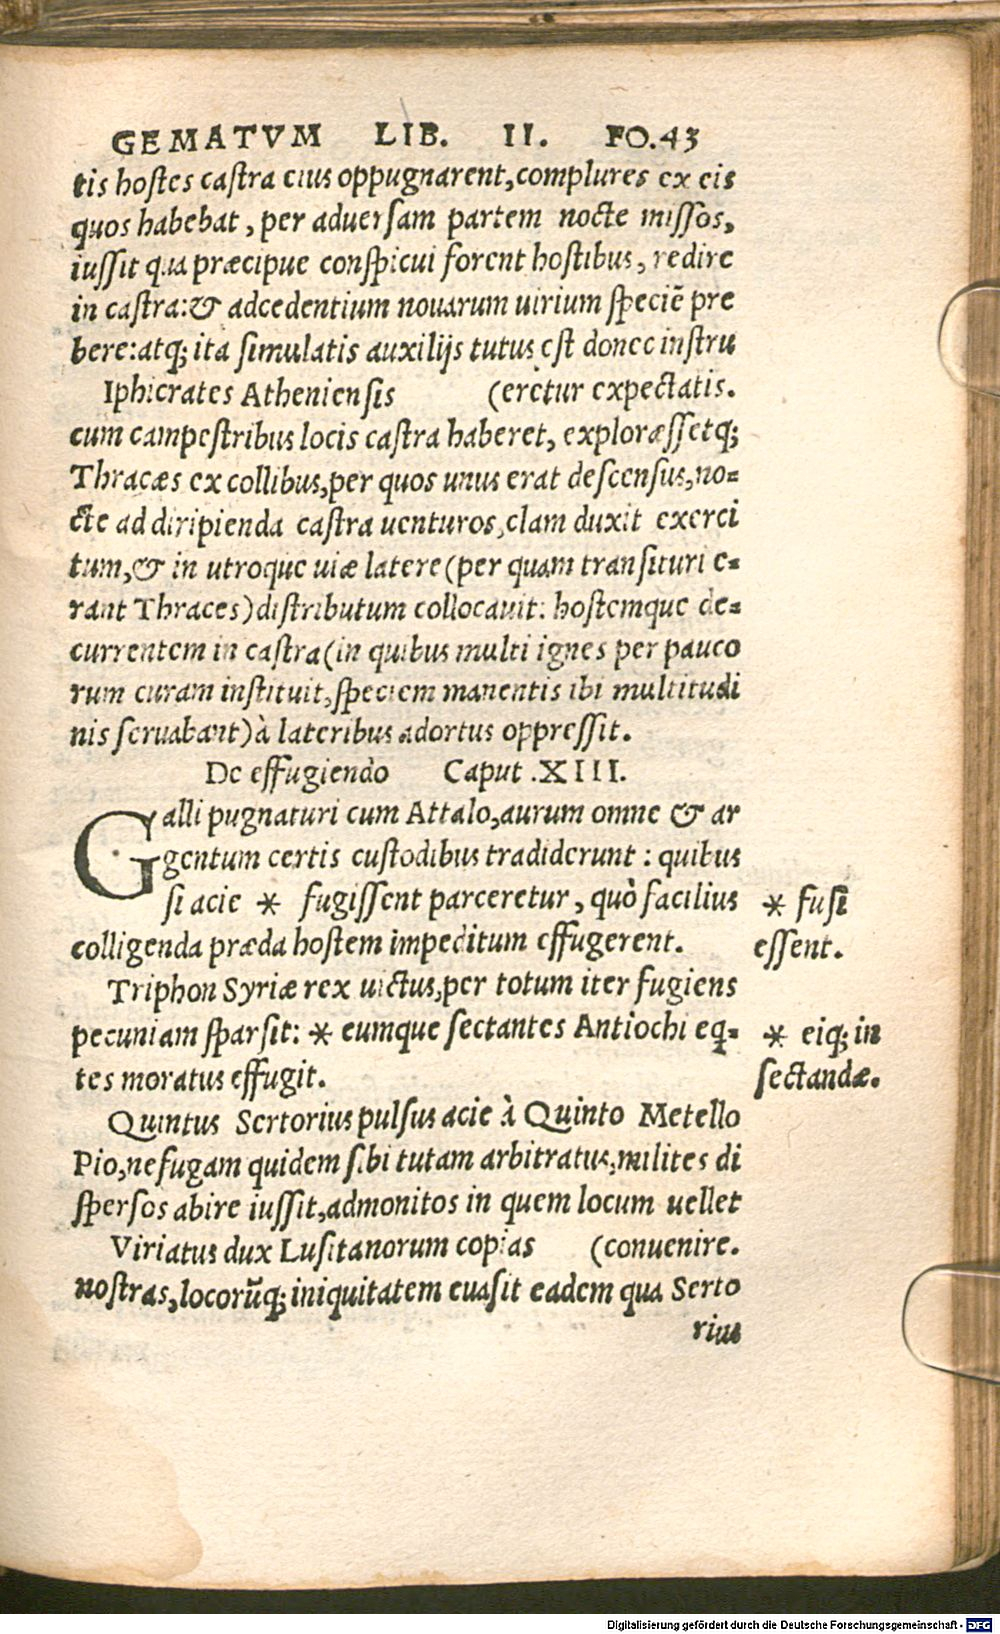 GEMATVM LIB. II. FO.43
tis hostes castra eius oppugnarent, complures ex eis
quos habebat, per aduersam partem nocte missos,
iussit qua præcipue conspicui forent hostibus, redire
in castra: & adcedentium nouarum uirium speciē pre
bere: atq; ita simulatis auxilijs tutus est donec instru
Iphicrates Atheniensis (eretur expectatis.
cum campestribus locis castra haberet, exploræssetq;
Thracæs ex collibus, per quos unus erat descensus, no=
cte ad diripienda castra uenturos, clam duxit exerci
tum, & in utroque uiæ latere (per quam transituri e=
rant Thraces) distributum collocauit: hostemque de=
currentem in castra (in quibus multi ignes per pauco
rum curam instituit, speciem manentis ibi multitudi
nis seruabant) à lateribus adortus oppressit.
De effugiendo Caput .XIII.
Galli pugnaturi cum Attalo, aurum omne & ar
gentum certis custodibus tradiderunt: quibus
si acie * fugissent parceretur, quò facilius
* fusi
colligenda præda hostem impeditum effugerent.
essent.
Triphon Syriæ rex uictus, per totum iter fugiens
pecuniam sparsit: * eumque sectantes Antiochi eq̄=
* eiq; in
tes moratus effugit.
sectandæ.
Quintus Sertorius pulsus acie à Quinto Metello
Pio, ne fugam quidem sibi tutam arbitratus, milites di
spersos abire iussit, admonitos in quem locum uellet
Viriatus dux Lusitanorum copias (conuenire.
nostras, locorūq; iniquitatem euasit eadem qua Serto
rius
Digitalisierung gefördert durch die Deutsche Forschungsgemeinschaft - DFG